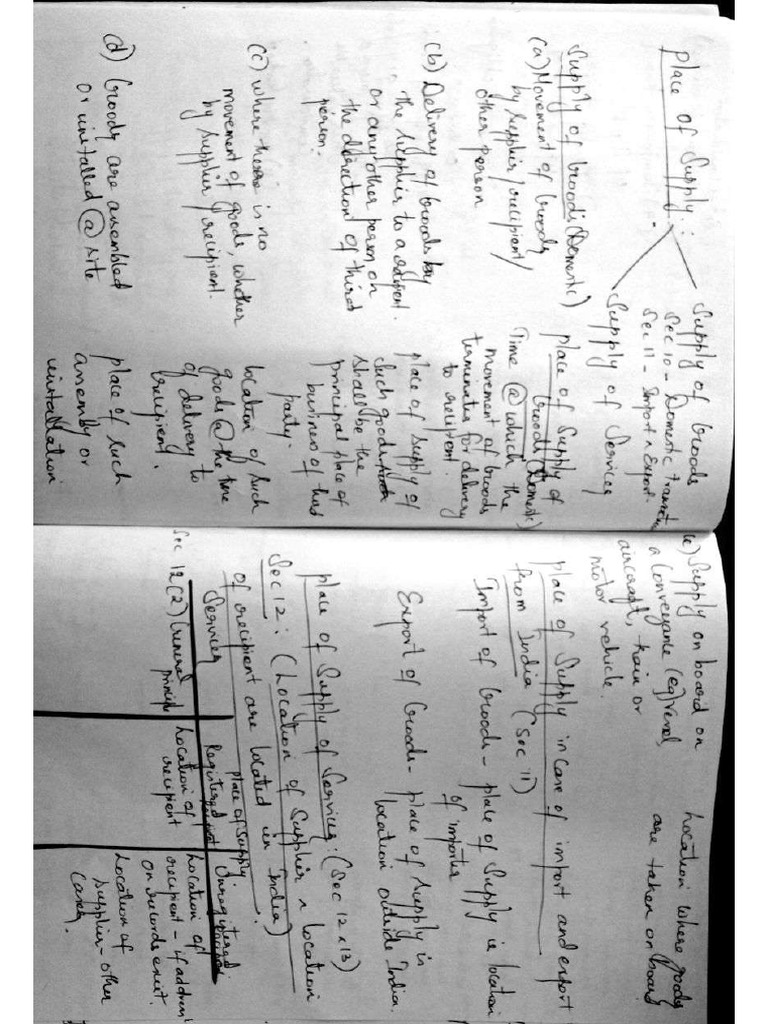 Place of Supply :
Supply of Goods
Sec 10 - Domestic
Sec 11 - Import & Export.
Supply of Services
Supply of Goods (Domestic)
Place of Supply of
Goods (Domestic)
(a) Movement of Goods
by supplier/recipient/
other person
Time @ which the
movement of Goods
terminates for delivery
to recipient.
(b) Delivery of Goods by
the supplier to a
or any other person on
the direction of third
person.
place of supply of
such goods
shall be the
principal place of
business of
party.
(c) where there is no
movement of goods, whether
by supplier/recipient.
location of such
goods @ the time
of delivery to
recipient.
(d) Goods are assembled
or @ site
place of such
assembly or
(e) Supply on board on
a conveyance (eg) Vessel,
aircraft, train or
motor vehicle.
Location where goods
are taken on board
place of Supply in case of import and export
from India (Sec 11)
Import of Goods - place of Supply is location
of importer
Export of Goods - place of supply is
location outside India.
place of Supply of Services: (Sec 12 & 13)
Sec 12: (Location of Supplier & location
of recipient are located in India)
place of supply.
Services
Registered
Unregistered
Sec 12(2) General
principle
Location of
recipient
Location of
recipient - if address
on records exist.
Location of
supplier - other
cases.